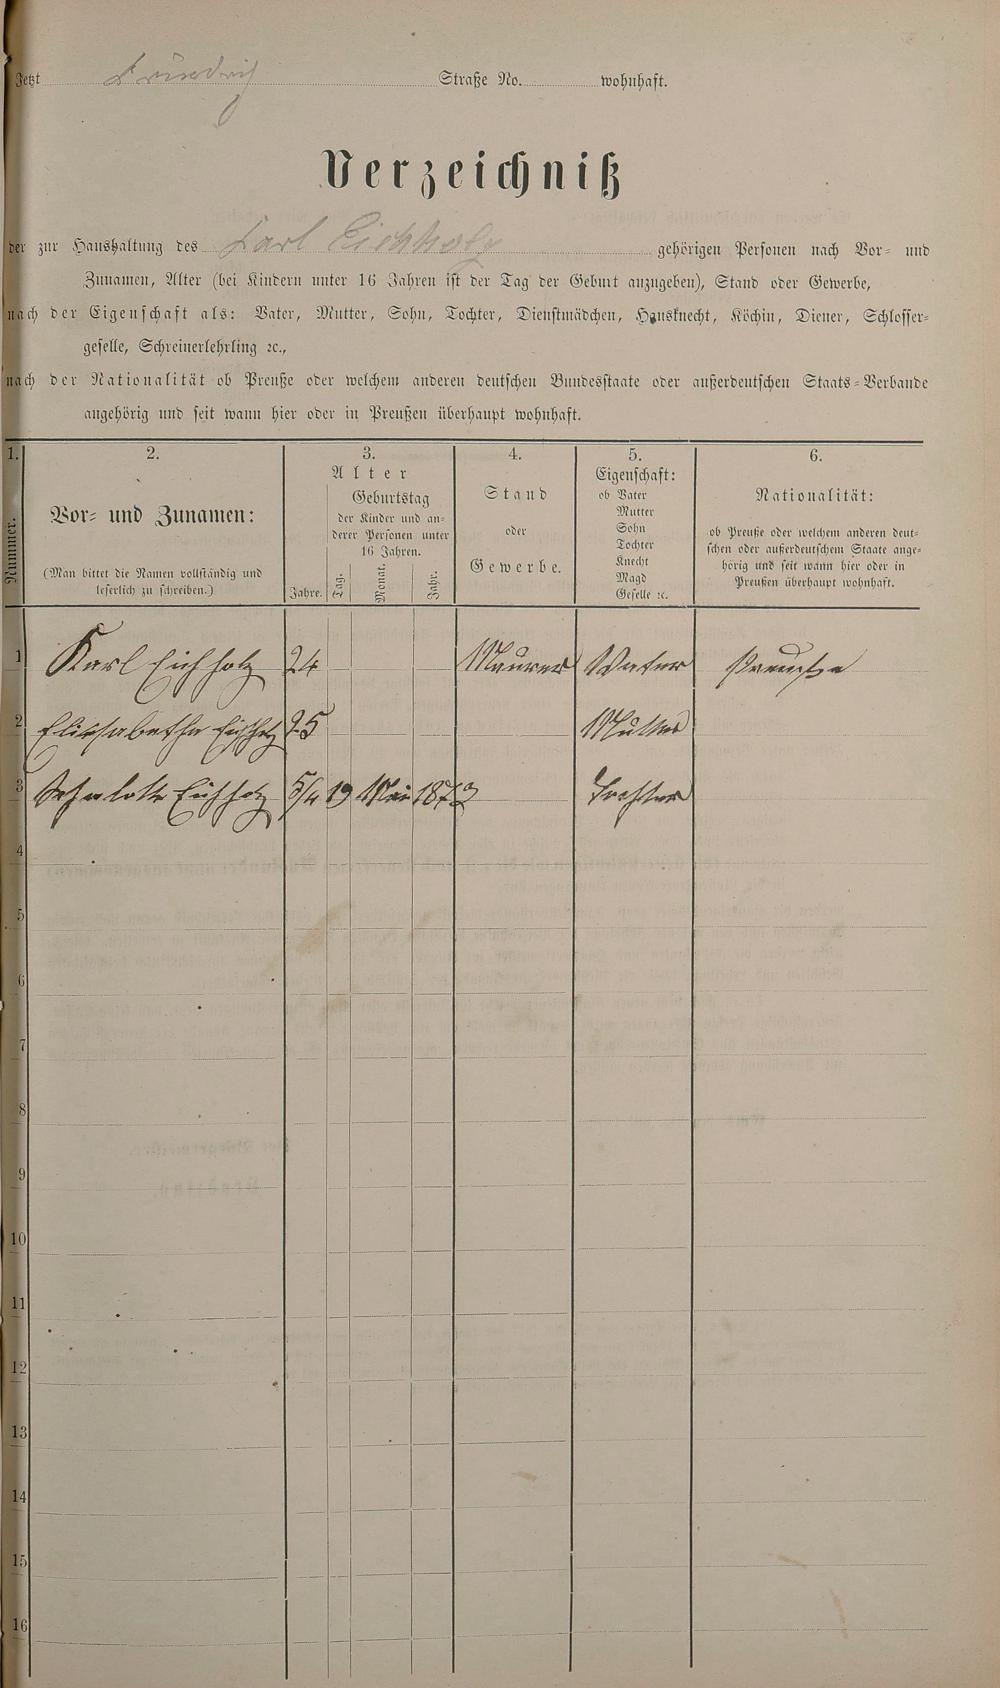 Jetzt Friedrich Straße No. wohnhaft.
Verzeichniß
der zur Haushaltung des Karl Eichholz gehörigen Personen nach Vor- und
Zunamen, Alter (bei Kindern unter 16 Jahren ist der Tag der Geburt anzugeben), Stand oder Gewerbe,
nach der Eigenschaft als: Vater, Mutter, Sohn, Tochter, Dienstmädchen, Hausknecht, Köchin, Diener, Schlosser-
geselle, Schreinerlehrling ꝛc.,
nach der Nationalität ob Preuße oder welchem anderen deutschen Bundesstaate oder außerdeutschen Staats-Verbande
angehörig und seit wann hier oder in Preußen überhaupt wohnhaft.
1.
Nummer.
2.
Vor- und Zunamen:
(Man bittet die Namen vollständig und
leserlich zu schreiben.)
3.
Alter
Jahre.
Geburtstag
der Kinder und an-
derer Personen unter
16 Jahren.
Tag.
Monat.
Jahr.
4.
Stand
oder
Gewerbe.
5.
Eigenschaft:
ob Vater
Mutter
Sohn
Tochter
Knecht
Magd
Geselle ꝛc.
6.
Nationalität:
ob Preuße oder welchem anderen deut-
schen oder außerdeutschem Staate ange-
hörig und seit wann hier oder in
Preußen überhaupt wohnhaft.
1 Karl Eichholz 24 Maurer Vater Preuße
2 Elisabetha Eichholz 25 Mutter
3 Scharlotte Eichholz 5/4 19 Mai 1873 Tochter
4
5
6
7
8
9
10
11
12
13
14
15
16